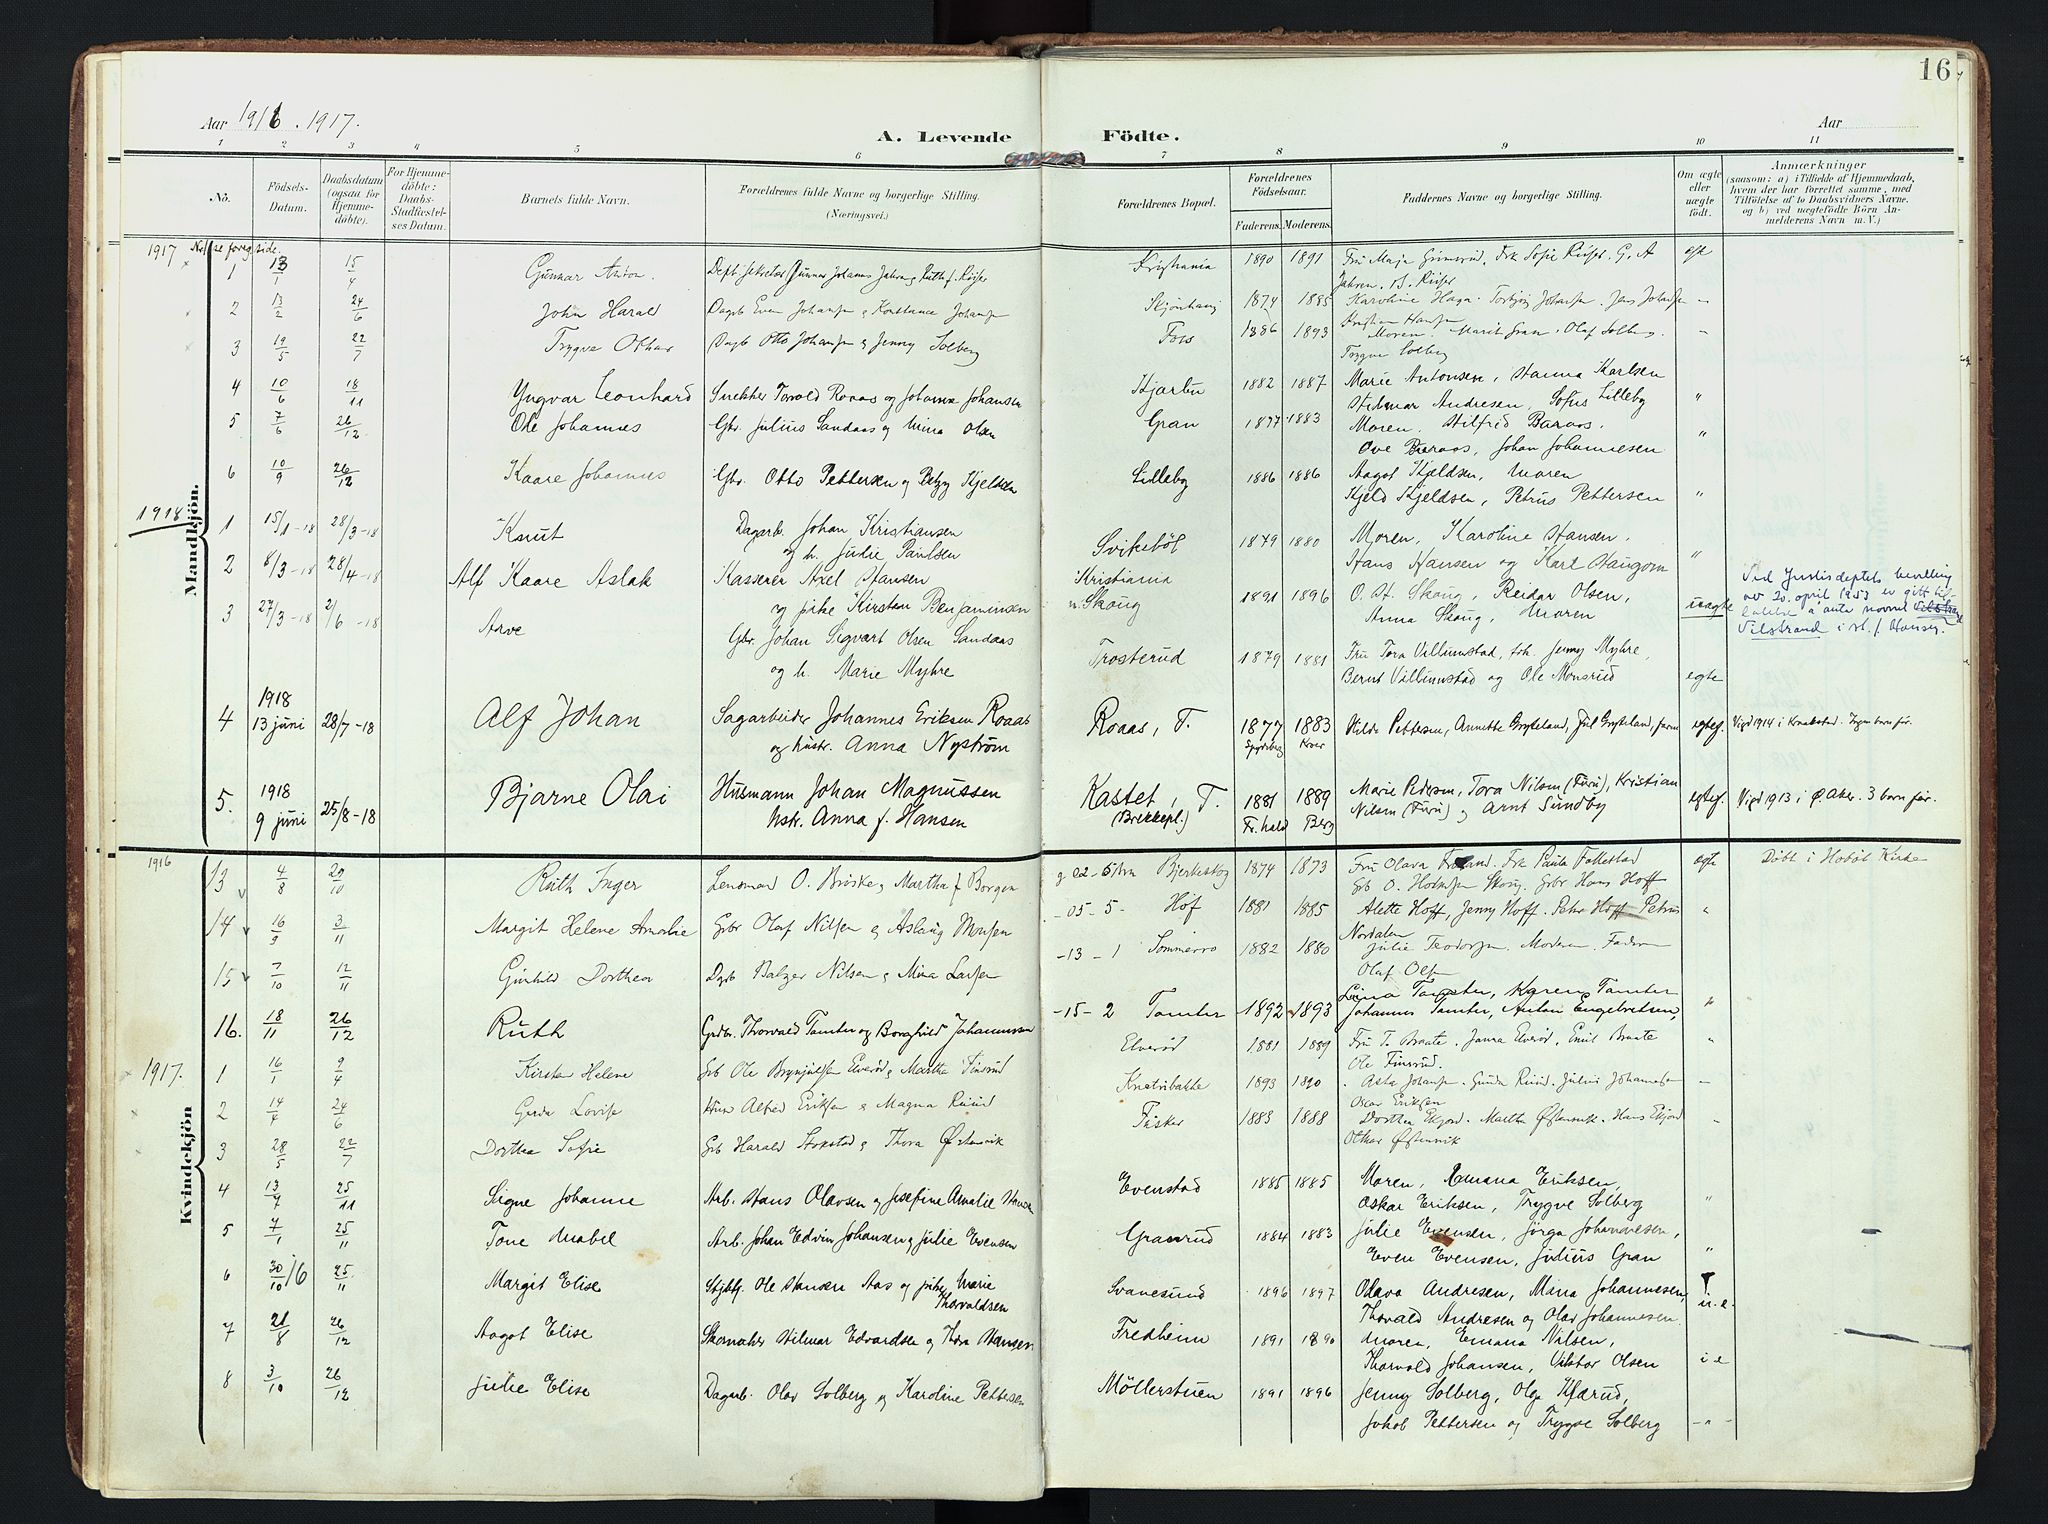 16
Aar 1916. 1917.
A. Levende Födte.
Aar
1 2 3 4 5 6 7 8 9 10 11
No.
Födsels-Datum.
Daabsdatum (ogsaa for Hjemmedöbte).
For Hjemmedöbte: Daabs-Stadfæstelses Datum.
Barnets fulde Navn.
Forældrenes fulde Navne og borgerlige Stilling. (Næringsvei.)
Forældrenes Bopæl.
Forældrenes Födselsaar.
Faderens. Moderens.
Faddernes Navne og borgerlige Stilling.
Om ægte eller uægte födt.
Anmærkninger (saasom: a) i Tilfælde af Hjemmedaab, hvem der har forrettet samme, med Tilföielse af to Daabsvidners Navne, og b) ved uægtefödte Börn Anmelderens Navn m. V.)
Mandkjön.
1917
1 13/1 15/4 Gunnar Anton. 1890 1891
2 13/2 24/6 John Harald Dagb Even Johansen & Konstance Johansen 1874 1885
3 19/5 22/7 Trygve Othar Dagb Otto Johansen & Jenny Solberg Foss 1886 1893 Moren. Marit Gran. Olaf Solberg. Trygve Solberg
4 10/6 18/11 Yngvar Leonhard Snekker Torvald Roaas og Johanne Johansen 1882 1887 Marie Antonsen, Hanna Karlsen
Hilmar Andresen, Sofus Lilleby "
5 7/6 26/12 Ole Johannes Gbr. Julius Sandaas og Mina Olsen Gran 1877 1883 Moren. Hilfrid Baraas.
Ove Baraas, Johan Johannesen "
6 10/9 26/12 Kaare Johannes Gbr. Otto Pettersen og Betzy Kjeldsen Lilleby 1886 1886 Aagot Kjeldsen, Moren
Kjeld Kjeldsen, Petrus Pettersen "
1918
1 15/1-18 28/3-18 Knut Dagarb. Johan Kristiansen
og h. Julie Paulsen Svikebøl 1879 1880 Moren, Karoline Hansen.
Hans Hansen og Karl Haugom "
2 8/3-18 28/4-18 Alf Kaare Aslak Kasserer Axel Hansen
og pike Kirsten Benjaminsen Kristiania
n. Skoug 1891 1896 O. H. Skoug, Reidar Olsen,
Anna Skoug, Moren uægte
Ved Justisdeptets bevilling
av 20. april 1953 er gitt til-
latelse å anta navnet
Vilstrand i st. f. Hansen.
3 27/3-18 2/6-18 Arve Gbr. Johan Sigvart Olsen Sandaas
og h. Marie Myhre Trosterud 1879 1881 Fru Tora Villumstad, frk. Jenny Myhre,
Bernt Villumstad og Ole Monsrud egte
4 1918 13 juni 28/7-18 Alf Johan Sagarbeider Johannes Eriksen Roaas
og hustr. Anna Nyström Roaas, T. 1877 1883 Hilda Pettersen, Annette Gryteland, Jul Gryteland, faren egtef. Vigd 1914 i Kraakstad. Ingen barn før.
5. 1918 9 juni 25/8-18 Bjarne Olai Husmann Johan Magnussen
hstr. Anna f. Hansen Kastet, T.
(Brekkepl.) 1881 Fr.hald 1889 Berg Marie Pedersen, Tora Nilsen (Furu), Kristian
Nilsen (Furu) og Arnt Sundby egtef. Vigd 1913 i Ø. Aker. 3 barn før.
Kvindekjön
1916
13 4/8 29/10 Ruth Inger Lensmand O. Briske & Martha f Borgen Bjerkeskog 1874 1873 ægte Døbt i Hobøl Kirke
14 16/9 3/11 Margit Helene Amalie Gbr Olaf Nilsen & Aslaug -05-5- Hof 1881 1885 Alette Hoff, Jenny Hoff. Peter Hoff Petrus
Nordalen "
15 7/10 12/11 Gunhild Dorthea Dgb Balzer Nilsen & Mina Larsen -13-1 Sommerro 1882 1880 Julie Teodorsen. Moderen. Faderen
Olaf Olsen
16. 18/11 26/12 Ruth Grdbr. Thorvald Tamter og Borghild Johannessen -15-2 Tamter 1892 1893 Lina Tamter, Karen Tamter
Johannes Tamter, Anton Engebretsen, "
1917.
1 16/1 9/4 Kirsten Helene Gb Ole Brynjulfsen Elverød & Martha Finsrud Elverød 1881 1889 Fru T. Braate. Janna Elverød, Emil Braate
Ole Finsrud. "
2 14/4 24/6 Gerda Lovise Alfred Eriksen & Magna Ruud 1893 1890 Asta Johansen. Gunda Ruud. Julius Johannesen
Oscar Eriksen
3 28/5 22/7 Dorthea Sofie Gb Harald Stokstad & Thora Østensvik Fisker 1883 1888 Dorthea Ekjord. Martha Østensvik. Hans Ekjord
Othar Østensvik
4 13/4 25/11 Signe Johanne Arb. Hans Olavsen og Josefine Amalie Evenstad 1885 1885 Moren, Emma Eriksen,
Oskar Eriksen, Trygve Solberg "
5 7/1 25/11 Tone Mabel Arb. Johan Edvin Johansen og Julie Evensen Granrud 1884 1883 Julie Evensen, Jørga Johannesen,
Even Evensen, Julius Gran "
6 30/10 16 25/11 Margit Elise Ole Aas og pike Marie
Thorvaldsen Svanesund 1896 1897 Olava Andresen, Maria Johannesen,
Thorvald Andresen og Olav Johannesen. u.e.
7 21/8 26/12 Aagot Elise Skomaker Hilmar Edvardsen og Thora Hansen Fredheim 1891 1890 Moren, Emma Nilsen,
Thorvald Johansen, Viktor Olsen
8 3/10 26/12 Julie Elise Dagarb. Olav Solberg og Karoline Pettersen Möllerstuen 1891 1896 Jenny Solberg, Olga Kfærud,
Jakob Pettersen og Trygve Solberg - " -